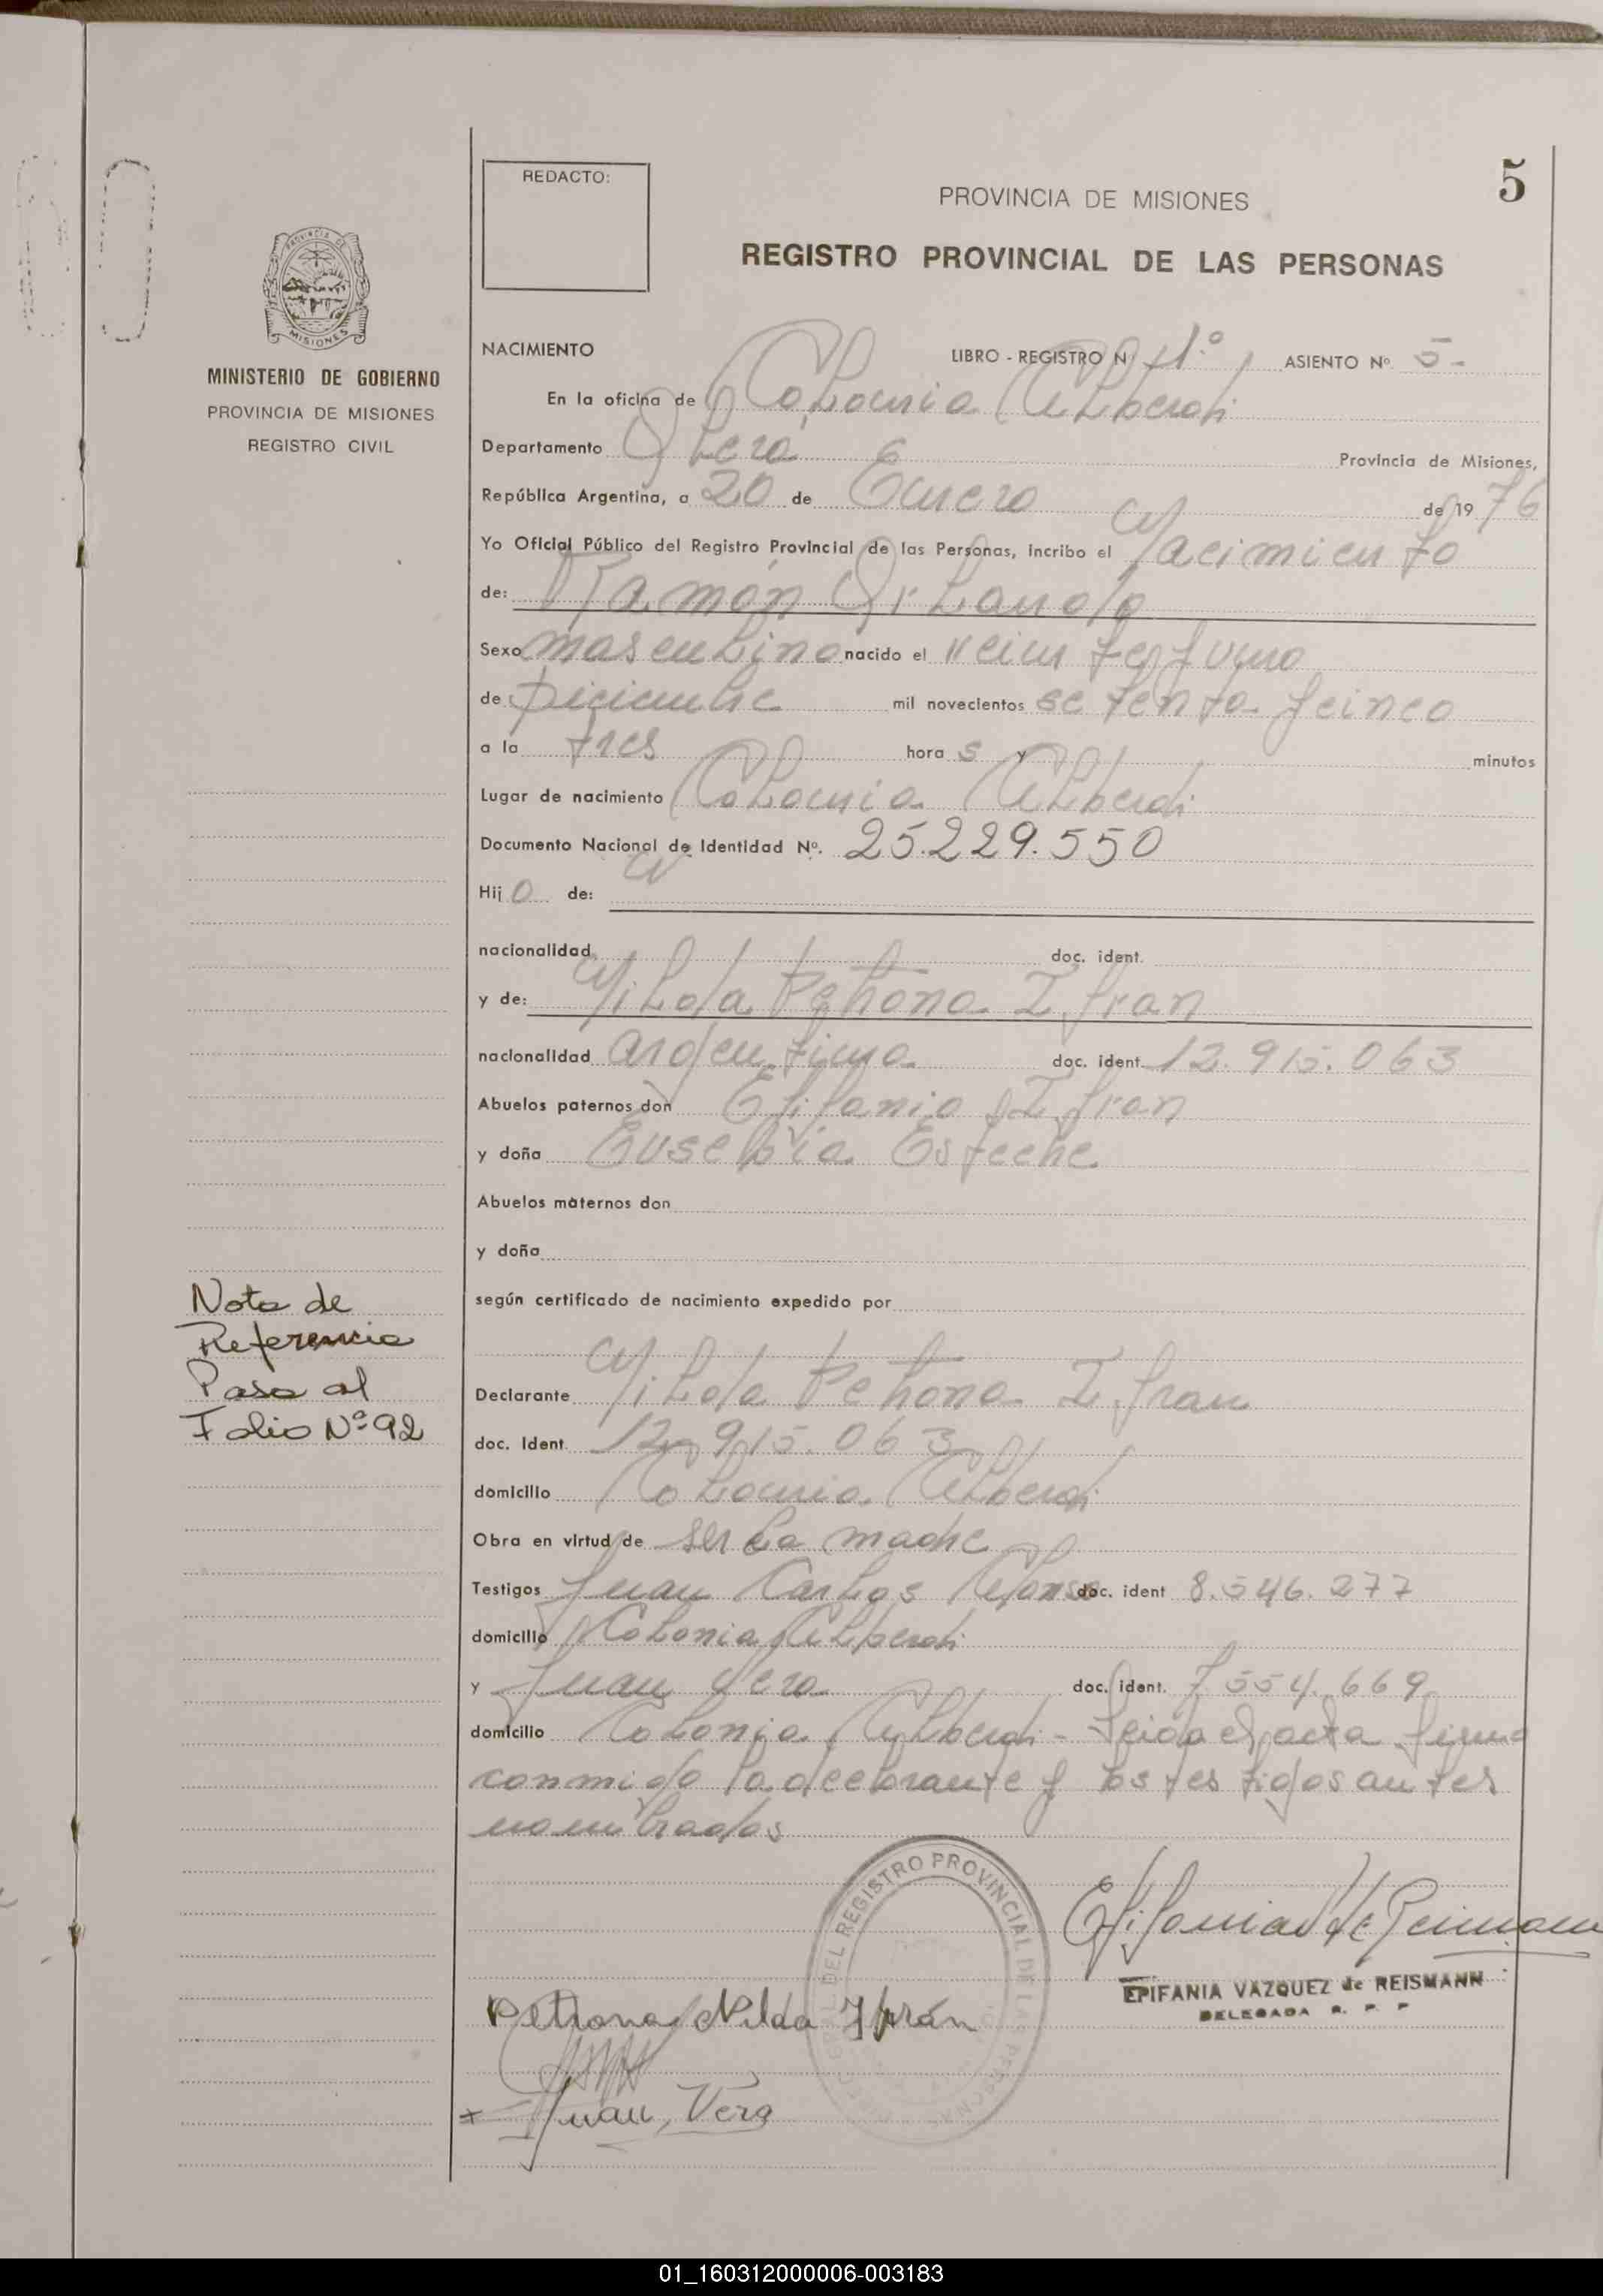 REDACTO:
5
PROVINCIA DE MISIONES
REGISTRO PROVINCIAL DE LAS PERSONAS
PROVINCIA DE
MISIONES
MINISTERIO DE GOBIERNO
PROVINCIA DE MISIONES
REGISTRO CIVIL
NACIMIENTO LIBRO - REGISTRO Nº 1º ASIENTO Nº 5-
En la oficina de Colonia Alberdi
Departamento Oberá Provincia de Misiones,
República Argentina, a 20 de Enero de 1976
Yo Oficial Público del Registro Provincial de las Personas, incribo el Nacimiento
de: Ramón Orlando
Sexo masculino nacido el veintiuno
de Diciembre mil novecientos setenta y cinco
a la tres hora s y minutos
Lugar de nacimiento Colonia Alberdi
Documento Nacional de Identidad Nº. 25.229.550
Hijo de:
nacionalidad doc. ident.
y de: Nilda Petrona Ifran
nacionalidad argentina doc. ident. 12.915.063
Abuelos paternos don Epifanio Ifran
y doña Eusebia Esteche
Abuelos maternos don
y doña
según certificado de nacimiento expedido por
Declarante Nilda Petrona Ifran
doc. Ident. 12.915.063
domicilio Colonia Alberdi
Obra en virtud de ser la madre
Testigos Juan Carlos Afonso doc. ident 8.546.277
domicilio Colonia Alberdi
y Juan Vera doc. ident. 7.554.669
domicilio Colonia Alberdi - Leida el acta firma
conmigo la declarante y los testigos antes
nombrados
Nota de
Referencia
Pasa al
Folio Nº 92
DEL REGISTRO PROVINCIAL DE LAS PERSONAS
EPIFANIA VAZQUEZ de REISMANN
DELEGADA R. P. P
Petrona Nilda Ifrán
Juan, Vera
01_160312000006-003183